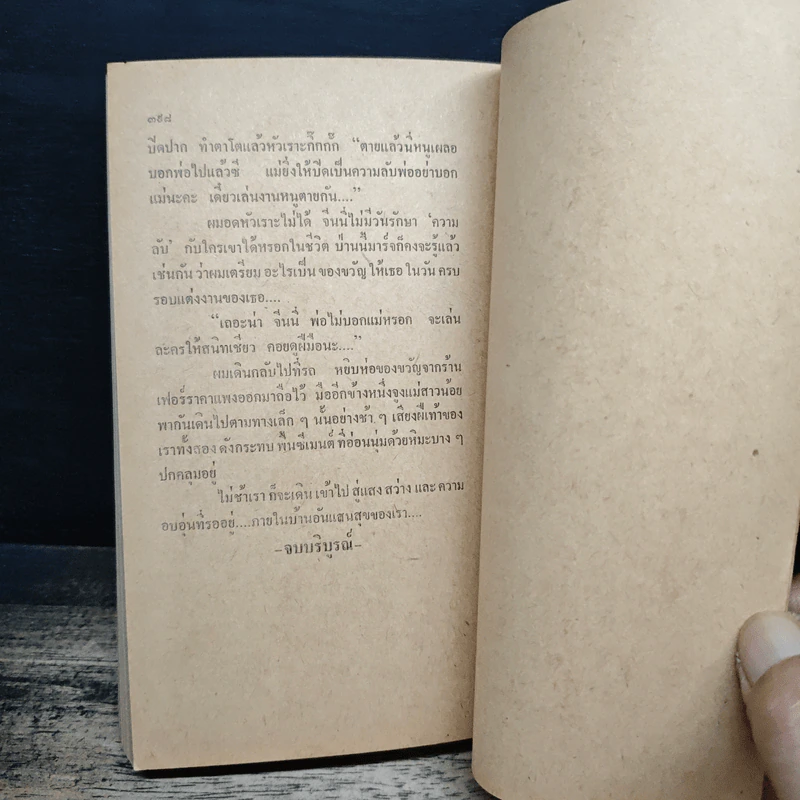 ๓๙๘
ปิดปาก ทำตาโตแล้วหัวเราะกิ๊กกั๊ก “ตายแล้วนี่หนูเผลอ
บอกพ่อไปแล้วซี แม่ยิ่งให้ปิดเป็นความลับพ่ออย่าบอก
แม่นะคะ เดี๋ยวเล่นงานหนูตายกัน....”
ผมอดหัวเราะไม่ได้ จีนนี่ไม่มีวันรักษา ‘ความ
ลับ’ กับใครเขาได้หรอกในชีวิต ป่านนี้มาร์จก็คงจะรู้แล้ว
เช่นกัน ว่าผมเตรียม อะไรเป็น ของขวัญ ให้เธอ ในวัน ครบ
รอบแต่งงานของเธอ....
“เถอะน่า จีนนี่ พ่อไม่บอกแม่หรอก จะเล่น
ละครให้สนิทเชียว คอยดูฝีมือนะ....”
ผมเดินกลับไปที่รถ หยิบห่อของขวัญจากร้าน
เฟอร์ราคาแพงออกมาถือไว้ มืออีกข้างหนึ่งจูงแม่สาวน้อย
พากันเดินไปตามทางเล็ก ๆ นั้นอย่างช้า ๆ เสียงฝีเท้าของ
เราทั้งสอง ดังกระทบ พื้นซีเมนต์ ที่อ่อนนุ่มด้วยหิมะบาง ๆ
ปกคลุมอยู่
ไม่ช้าเรา ก็จะเดิน เข้าไป สู่แสง สว่าง และ ความ
อบอุ่นที่รออยู่....ภายในบ้านอันแสนสุขของเรา....
–จบบริบูรณ์–